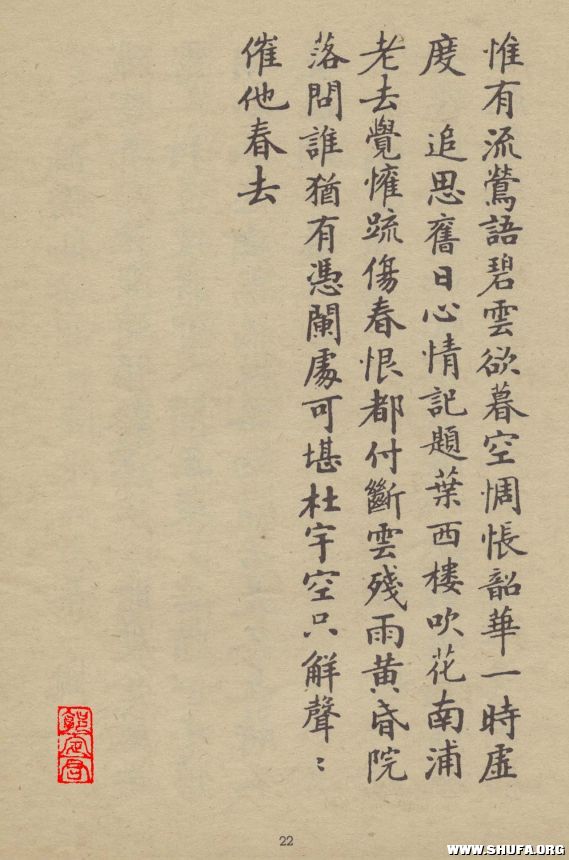 惟有流鶯語碧雲欲暮空惆悵韶華一時虛
度　追思舊日心情記題葉西樓吹花南浦
老去覺懽疏傷春恨都付斷雲殘雨黃昏院
落問誰猶有憑闌處可堪杜宇空只解聲〻
催他春去
22
WWW.SHUFA.ORG